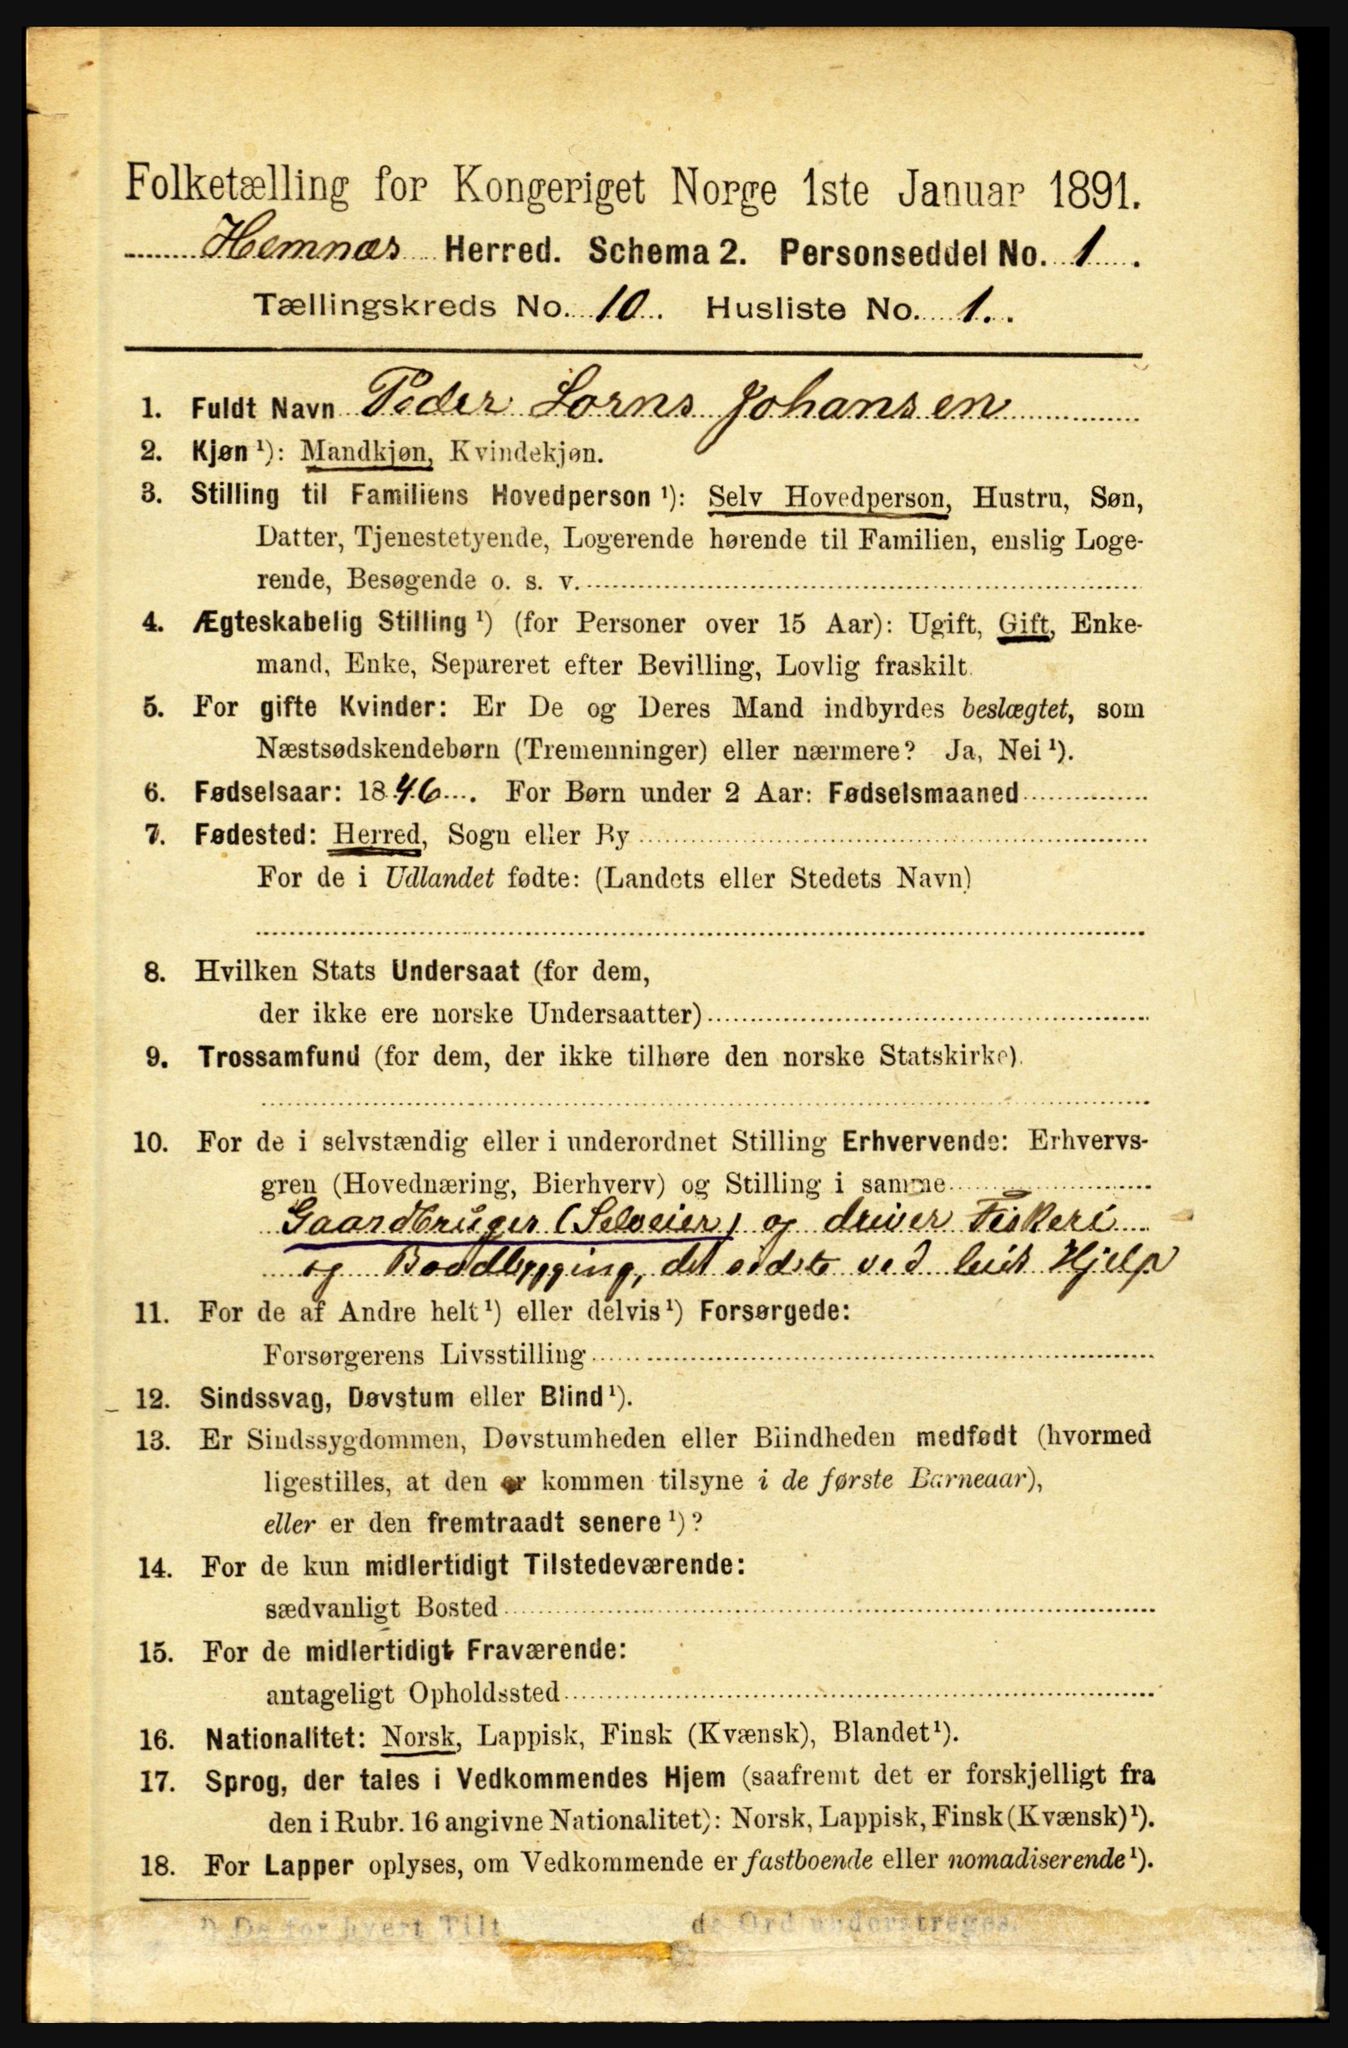 Folketælling for Kongeriget Norge 1ste Januar 1891.
Hemnæs Herred. Schema 2. Personseddel No. 1.
Tællingskreds No. 10. Husliste No. 1.
1. Fuldt Navn Peder Lorns Johansen
2. Kjøn ¹): Mandkjøn, Kvindekjøn.
3. Stilling til Familiens Hovedperson ¹): Selv Hovedperson, Hustru, Søn,
Datter, Tjenestetyende, Logerende hørende til Familien, enslig Loge-
rende, Besøgende o. s. v.
4. Ægteskabelig Stilling ¹) (for Personer over 15 Aar): Ugift, Gift, Enke-
mand, Enke, Separeret efter Bevilling, Lovlig fraskilt.
5. For gifte Kvinder: Er De og Deres Mand indbyrdes beslægtet, som
Næstsødskendebørn (Tremenninger) eller nærmere? Ja, Nei ¹).
6. Fødselsaar: 1846. For Børn under 2 Aar: Fødselsmaaned
7. Fødested: Herred, Sogn eller By
For de i Udlandet fødte: (Landets eller Stedets Navn)
8. Hvilken Stats Undersaat (for dem,
der ikke ere norske Undersaatter)
9. Trossamfund (for dem, der ikke tilhøre den norske Statskirke).
10. For de i selvstændig eller i underordnet Stilling Erhvervende: Erhvervs-
gren (Hovednæring, Bierhverv) og Stilling i samme
Gaardbruger (Selveier) og driver Fiskeri
og Baadbygging, det sidste ved leid Hjelp
11. For de af Andre helt ¹) eller delvis ¹) Forsørgede:
Forsørgerens Livsstilling
12. Sindssvag, Døvstum eller Blind ¹).
13. Er Sindssygdommen, Døvstumheden eller Blindheden medfødt (hvormed
ligestilles, at den er kommen tilsyne i de første Barneaar),
eller er den fremtraadt senere ¹)?
14. For de kun midlertidigt Tilstedeværende:
sædvanligt Bosted
15. For de midlertidigt Fraværende:
antageligt Opholdssted
16. Nationalitet: Norsk, Lappisk, Finsk (Kvænsk), Blandet ¹).
17. Sprog, der tales i Vedkommendes Hjem (saafremt det er forskjelligt fra
den i Rubr. 16 angivne Nationalitet): Norsk, Lappisk, Finsk (Kvænsk) ¹).
18. For Lapper oplyses, om Vedkommende er fastboende eller nomadiserende ¹).
¹) De for hvert Tilf de Ord understreges.